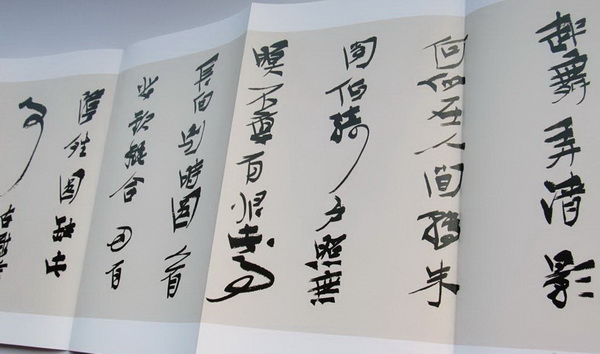 起舞弄清影
何似在人間轉朱
閣低綺户照無
眠不應有恨何事
長向别時圆人有
悲歡離合月有
陰晴圆缺此
事古難